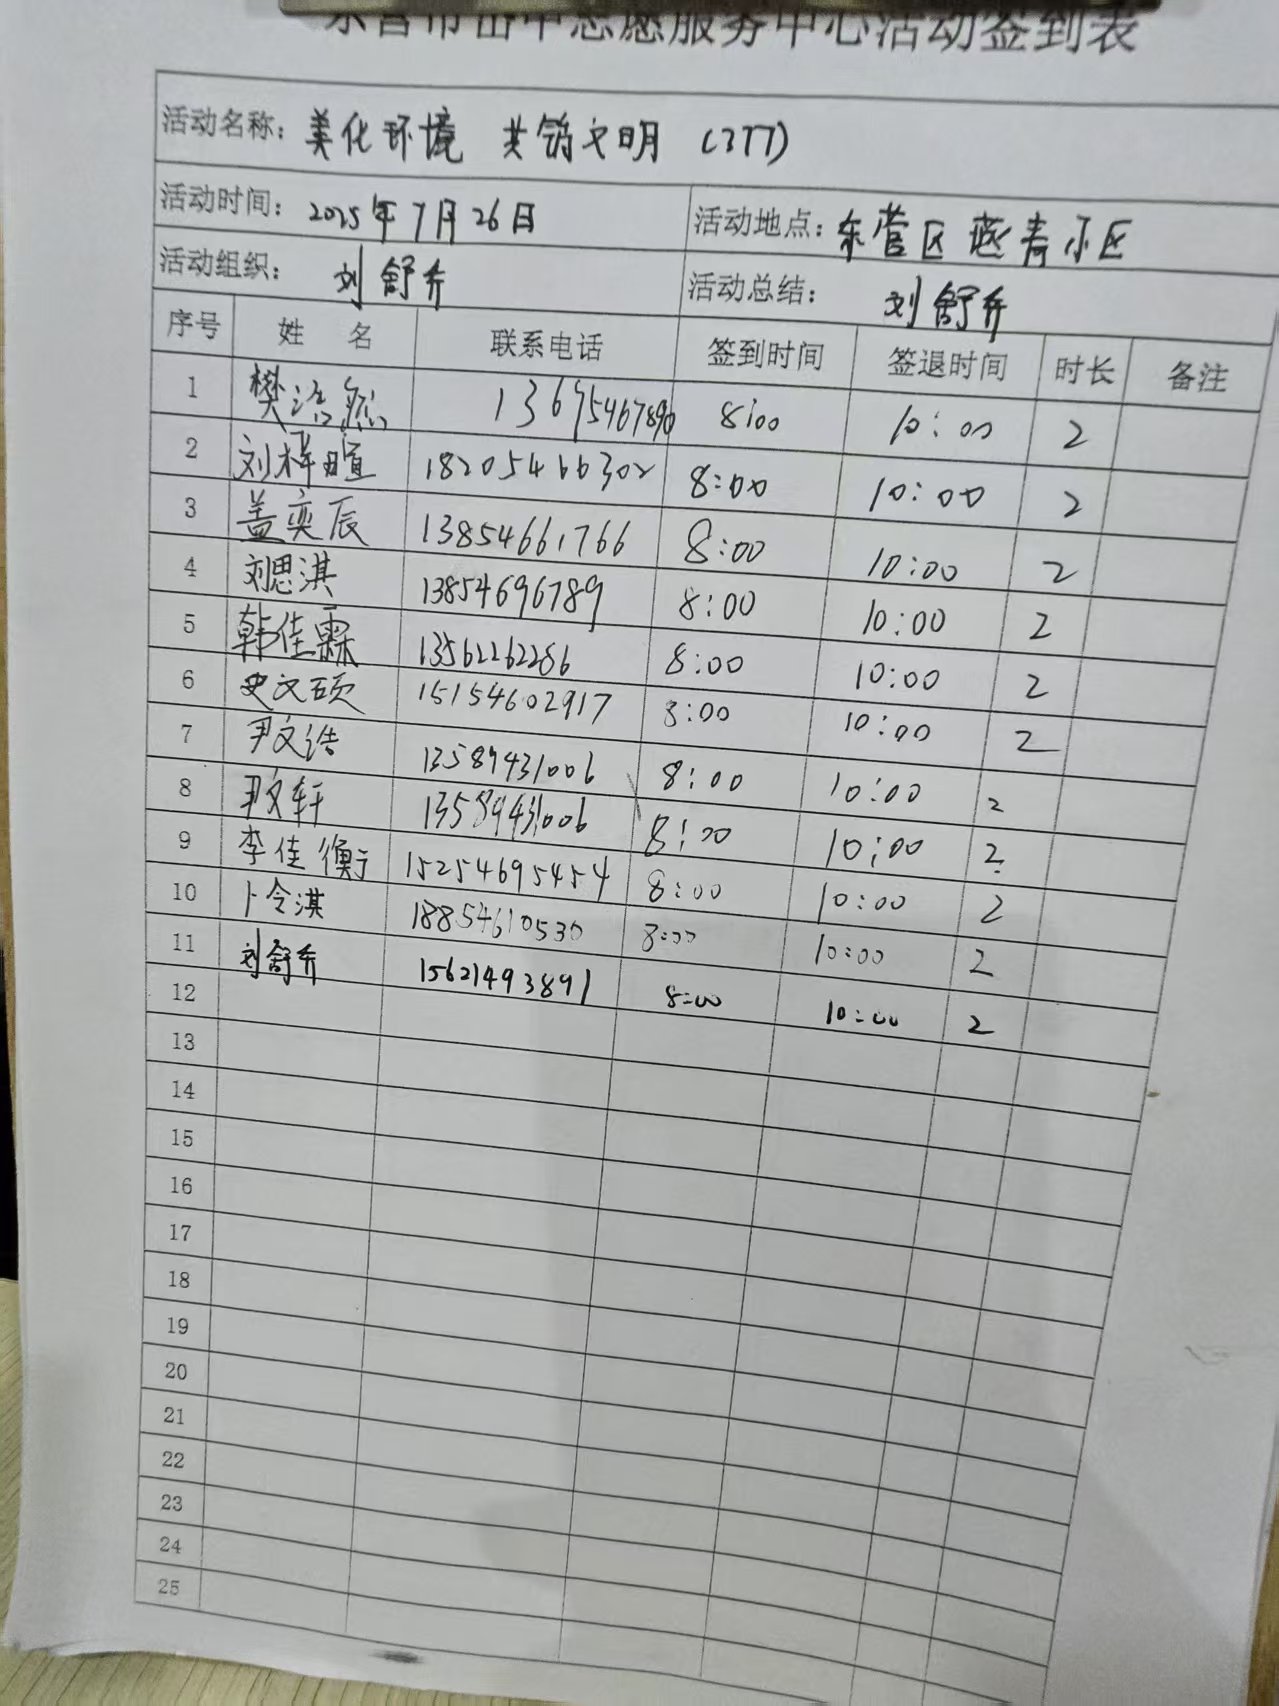 东营市出中志愿服务中心活动签到表
活动名称: 美化环境 共铸文明 (377)
活动时间: 2025年7月26日 活动地点: 东营区燕青小区
活动组织: 刘舒乔 活动总结: 刘舒乔
序号 姓 名 联系电话 签到时间 签退时间 时长 备注
1 樊浩然 13695467890 8:00 10:00 2
2 刘梓暄 18205466302 8:00 10:00 2
3 盖奕辰 13854661766 8:00 10:00 2
4 刘思淇 13854696789 8:00 10:00 2
5 韩佳霖 13562262286 8:00 10:00 2
6 史文硕 15154602917 8:00 10:00 2
7 尹文浩 13589431006 8:00 10:00 2
8 尹文轩 13589431006 8:00 10:00 2
9 李佳衡 15254695454 8:00 10:00 2
10 卜令淇 18854610530 8:00 10:00 2
11 刘舒乔 15621493891 8:00 10:00 2
12
13
14
15
16
17
18
19
20
21
22
23
24
25